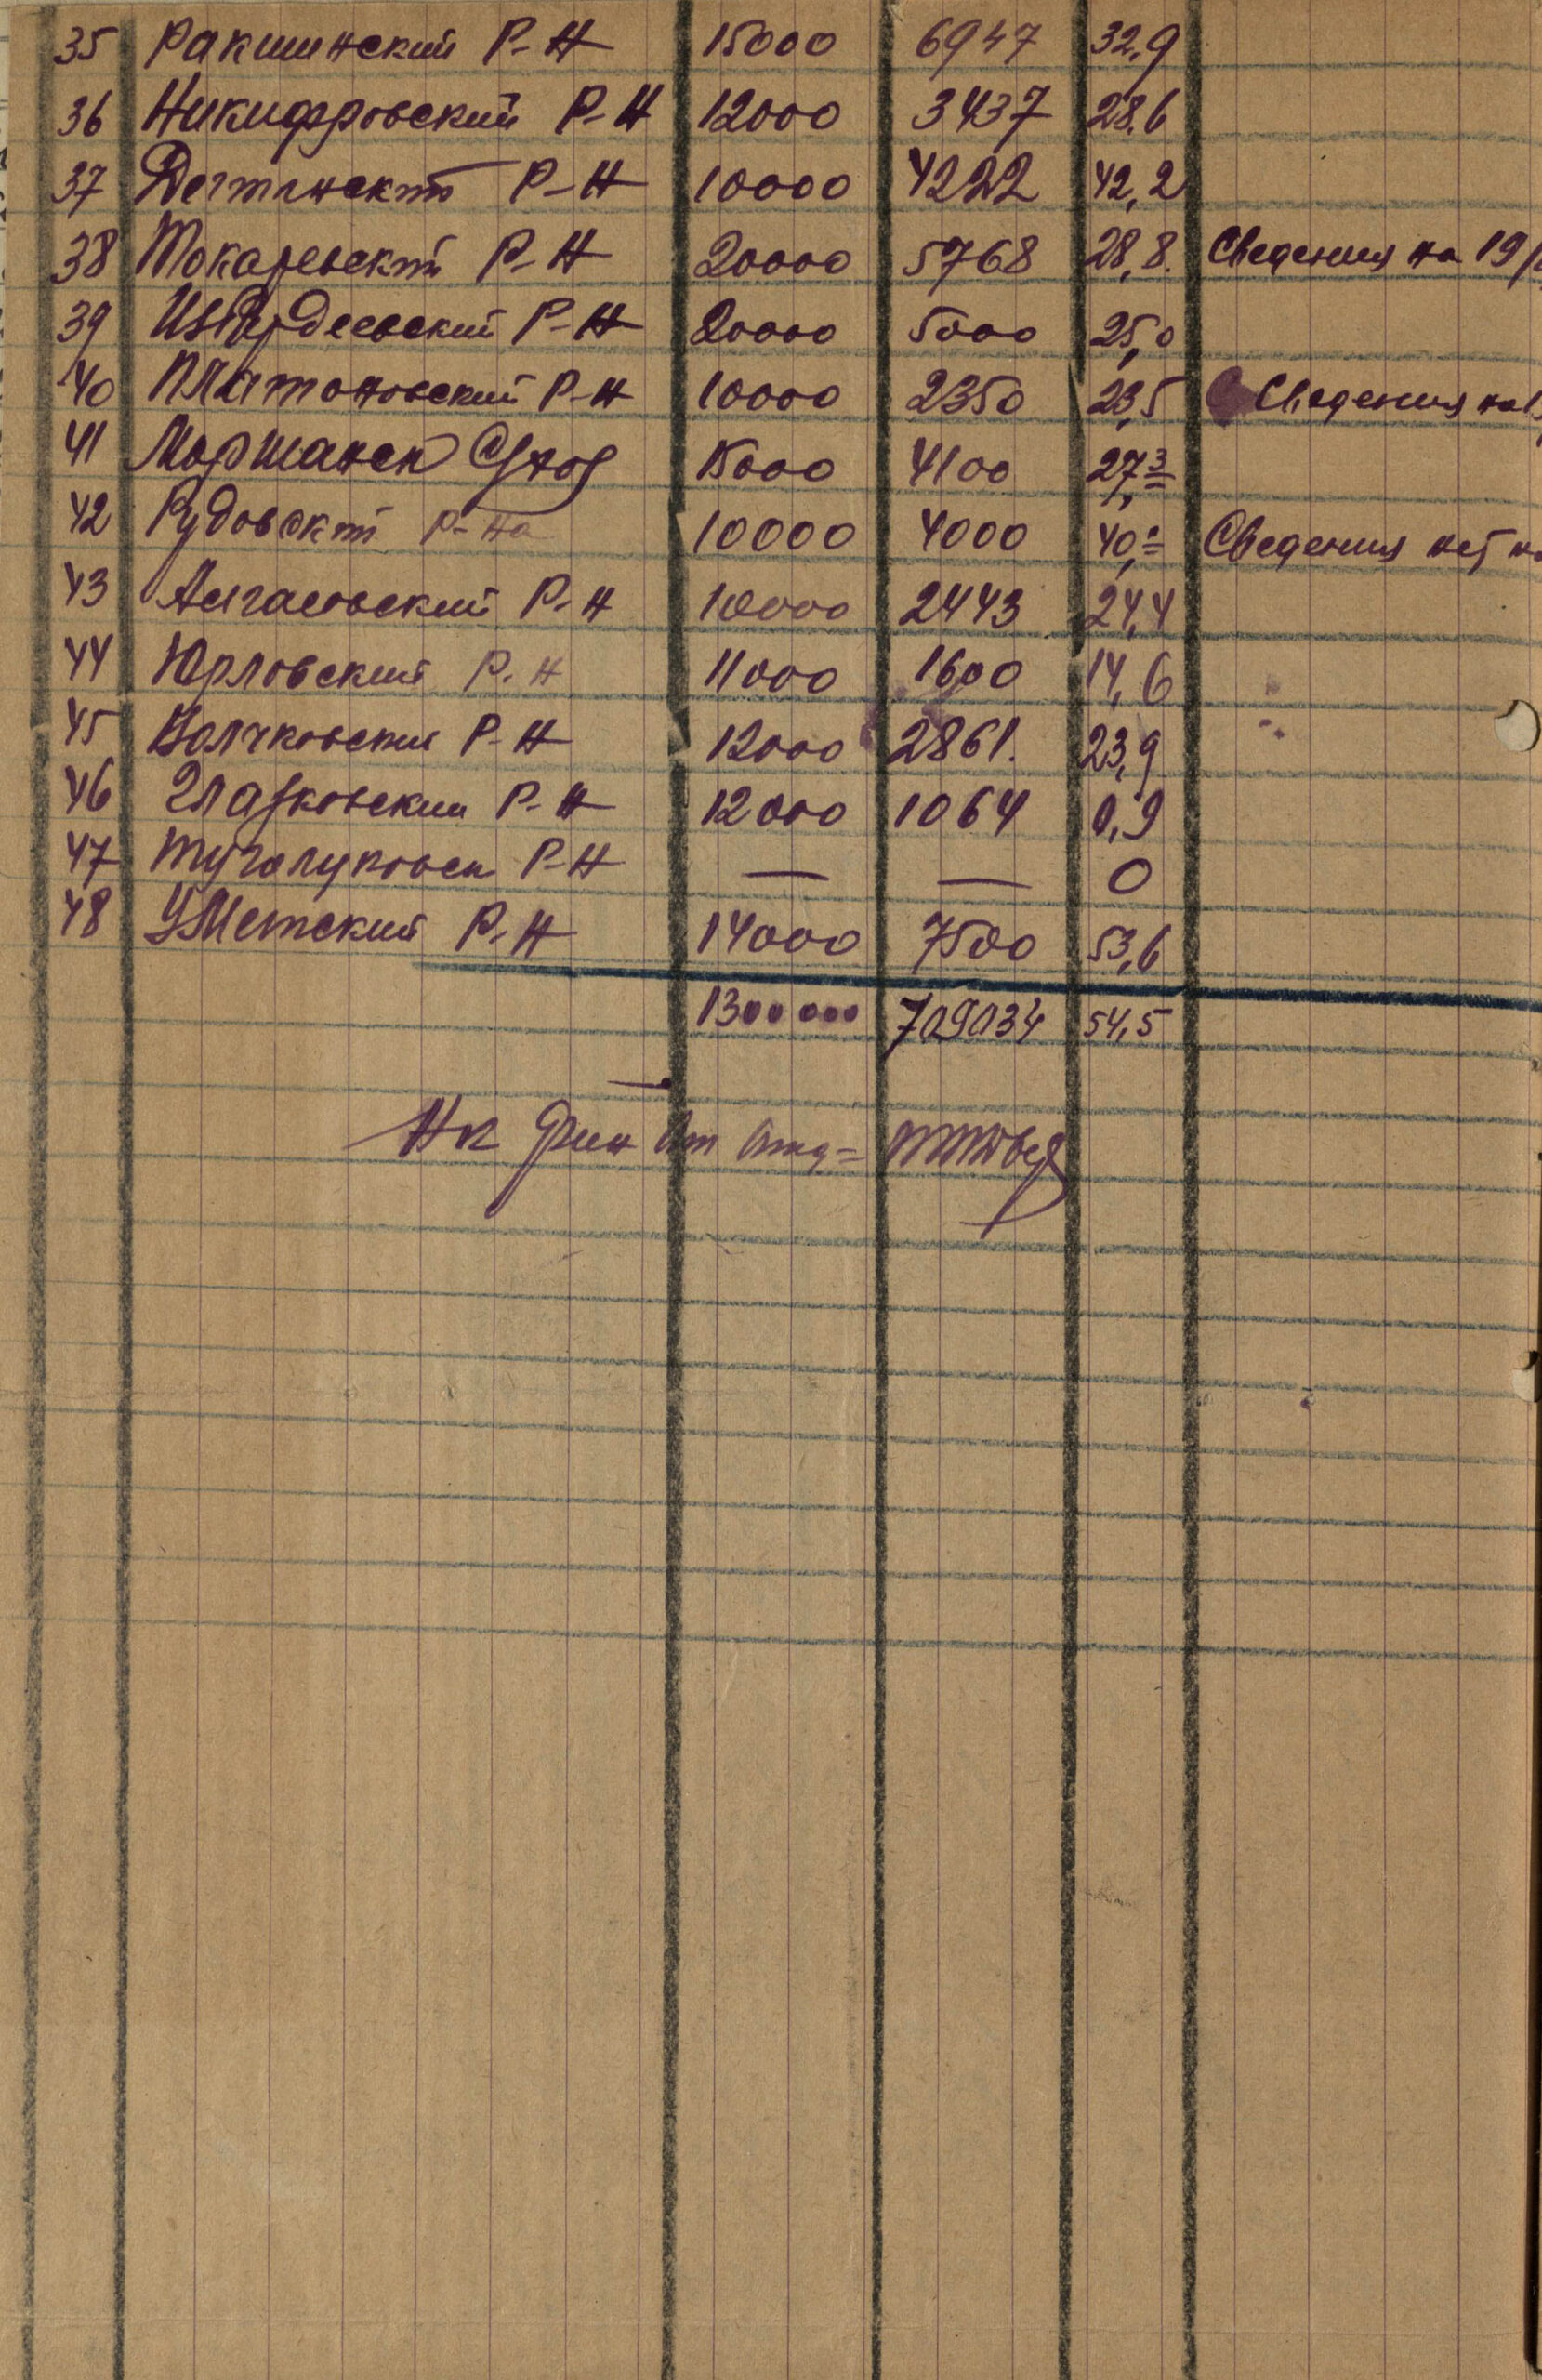 35 Ракшинский Р-Н 15000 6947 32,9
36 Никифровский Р-Н 12000 3437 28,6
37 Дегтянский Р-Н 10000 4222 42,2
38 Токаревский Р-Н 20000 5768 28,8. Сведения на 19
39 Избердеевский Р-Н 20000 5000 25,0
40 Платоновский Р-Н 10000 2350 23,5 Сведения на
41 Моршанск 15000 4100 27,3
42 Рудовский Р-на 10000 4000 40,= Сведения нет
43 Алгасовский Р-Н 10000 2443 24,4
44 Юрловский Р-Н 11000 1600 14,6
45 Волчковский Р-Н 12000 2861. 23,9
46 Глазковский Р-Н 12000 1064 0,9
47 Туголуковск Р-Н — — 0
48 Уметский Р-Н 14000 7500 53,6
1300000 709034 54,5
Нк Фин